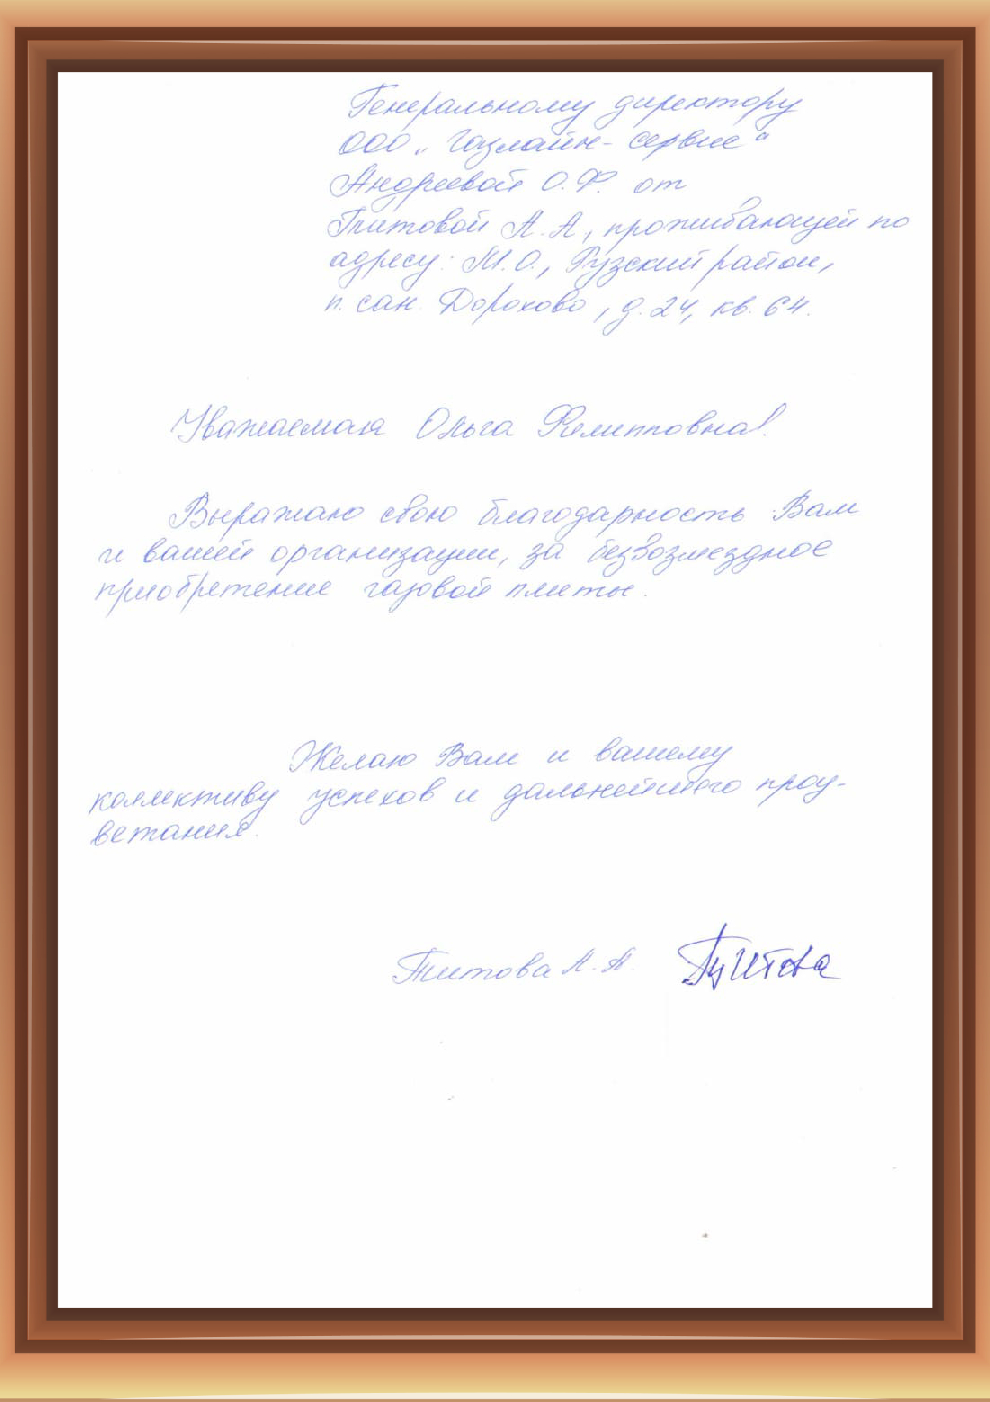 Генеральному директору
ООО „Газлайн-сервис“
Андреевой О.Ф. от
Титовой А.А, проживающей по
адресу: М.О., Рузский район,
п. сан. Дорохово, д. 24, кв. 64.
Уважаемая Ольга Филипповна!
Выражаю свою благодарность Вам
и вашей организации, за безвозмездное
приобретение газовой плиты.
Желаю Вам и вашему
коллективу успехов и дальнейшего проц-
ветания.
Титова А.А. Титова